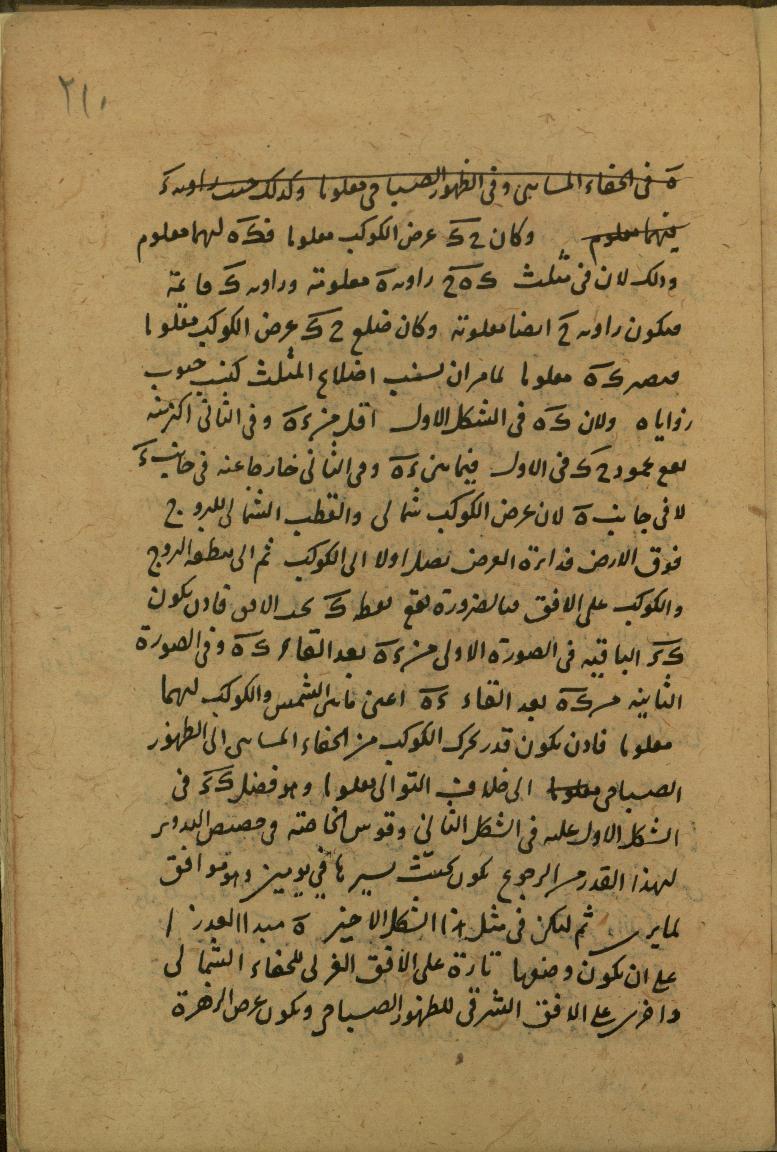 ٢١٠
ه فى الخفاء المسائى وفى الظهور الصباحى معلوما وكذلك جيب زاويه ء
فيهما معلوم وكان ح ك عرض الكوكب معلوما فك ه لهما معلوم
وذلك لان فى مثلث ك ه ح زاويه ه معلومة وزاويه ك قائمة
فيكون زاويه ح ايضا معلومة وكان ضلع ح ك عرض الكوكب معلوما
فيصير ك ه معلوما لما مر ان نسب اضلاع المثلث كنسب جيوب
زواياه ولان ك ه فى الشكل الاول اقل من ء ه وفى الثانى اكثر منه
يقع عمود ح ك فى الاول فيما بين ء ه وفى الثانى خارجا عنه فى جانب ء
لا فى جانب ه لان عرض الكوكب شمالى والقطب الشمالى للبروج
فوق الارض فدائرة العرض تصل اولا الى الكوكب ثم الى منطقة البروج
والكوكب على الافق فبالضرورة تقع نقطه ك تحت الافق فاذن يكون
ك ء الباقيه فى الصورة الاولى من ء ه بعد القاء ك ه وفى الصورة
الثانيه من ك ه بعد القاء ء ه اعنى ما بين الشمس والكوكب لهما
معلوما فاذن يكون قدر تحرك الكوكب من الخفاء المسائى الى الظهور
الصباحى معلوما الى خلاف التوالى معلوما وهو فضل ك ء فى
الشكل الاول عليه فى الشكل الثانى وقوس الخاصة فى حضيض التدوير
لهذا القدر من الرجوع يكون كحث يسيرها فى يومين وهو موافق
لما يرى ثم ليكن فى مثل هذا الشكل الاخير ه مبدا الجدى
على ان يكون وضعها تارة على الافق الغربى للخفاء الشمالى
واخرى على الافق الشرقى للظهور الصباحى ويكون عرض الزهرة